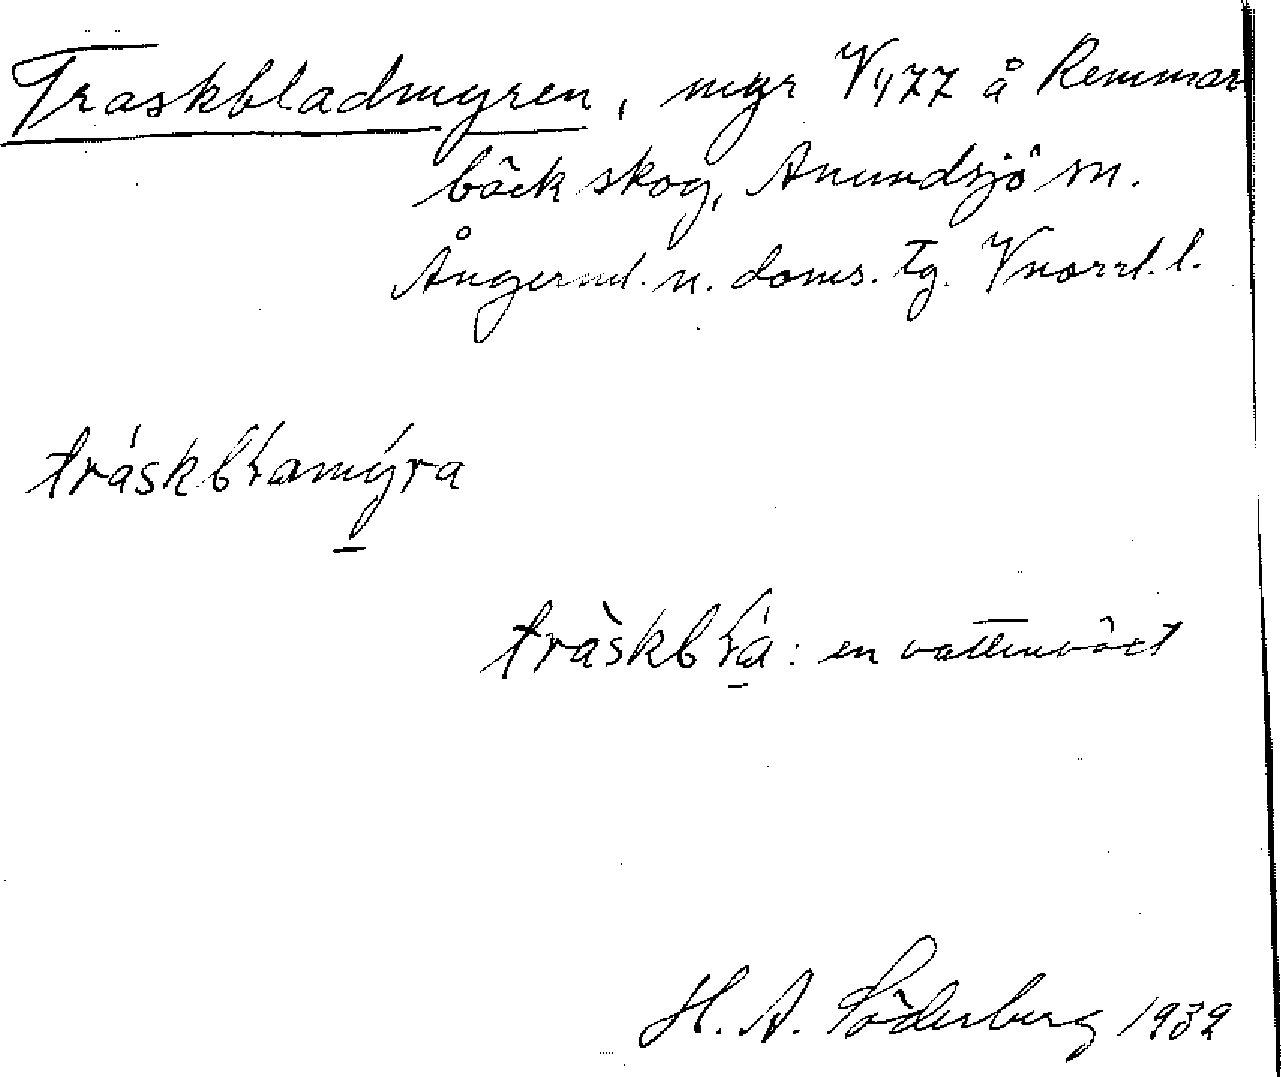 Traskbladmyren, myr V4,77 å Remmar
bäck skog, Anundsjö sn.
Ångerml. n. doms. tg. Vnorrl. l.
tráskbɽamýra
tràskbɽa: en vattenväxt
H. A. Söderberg 1939